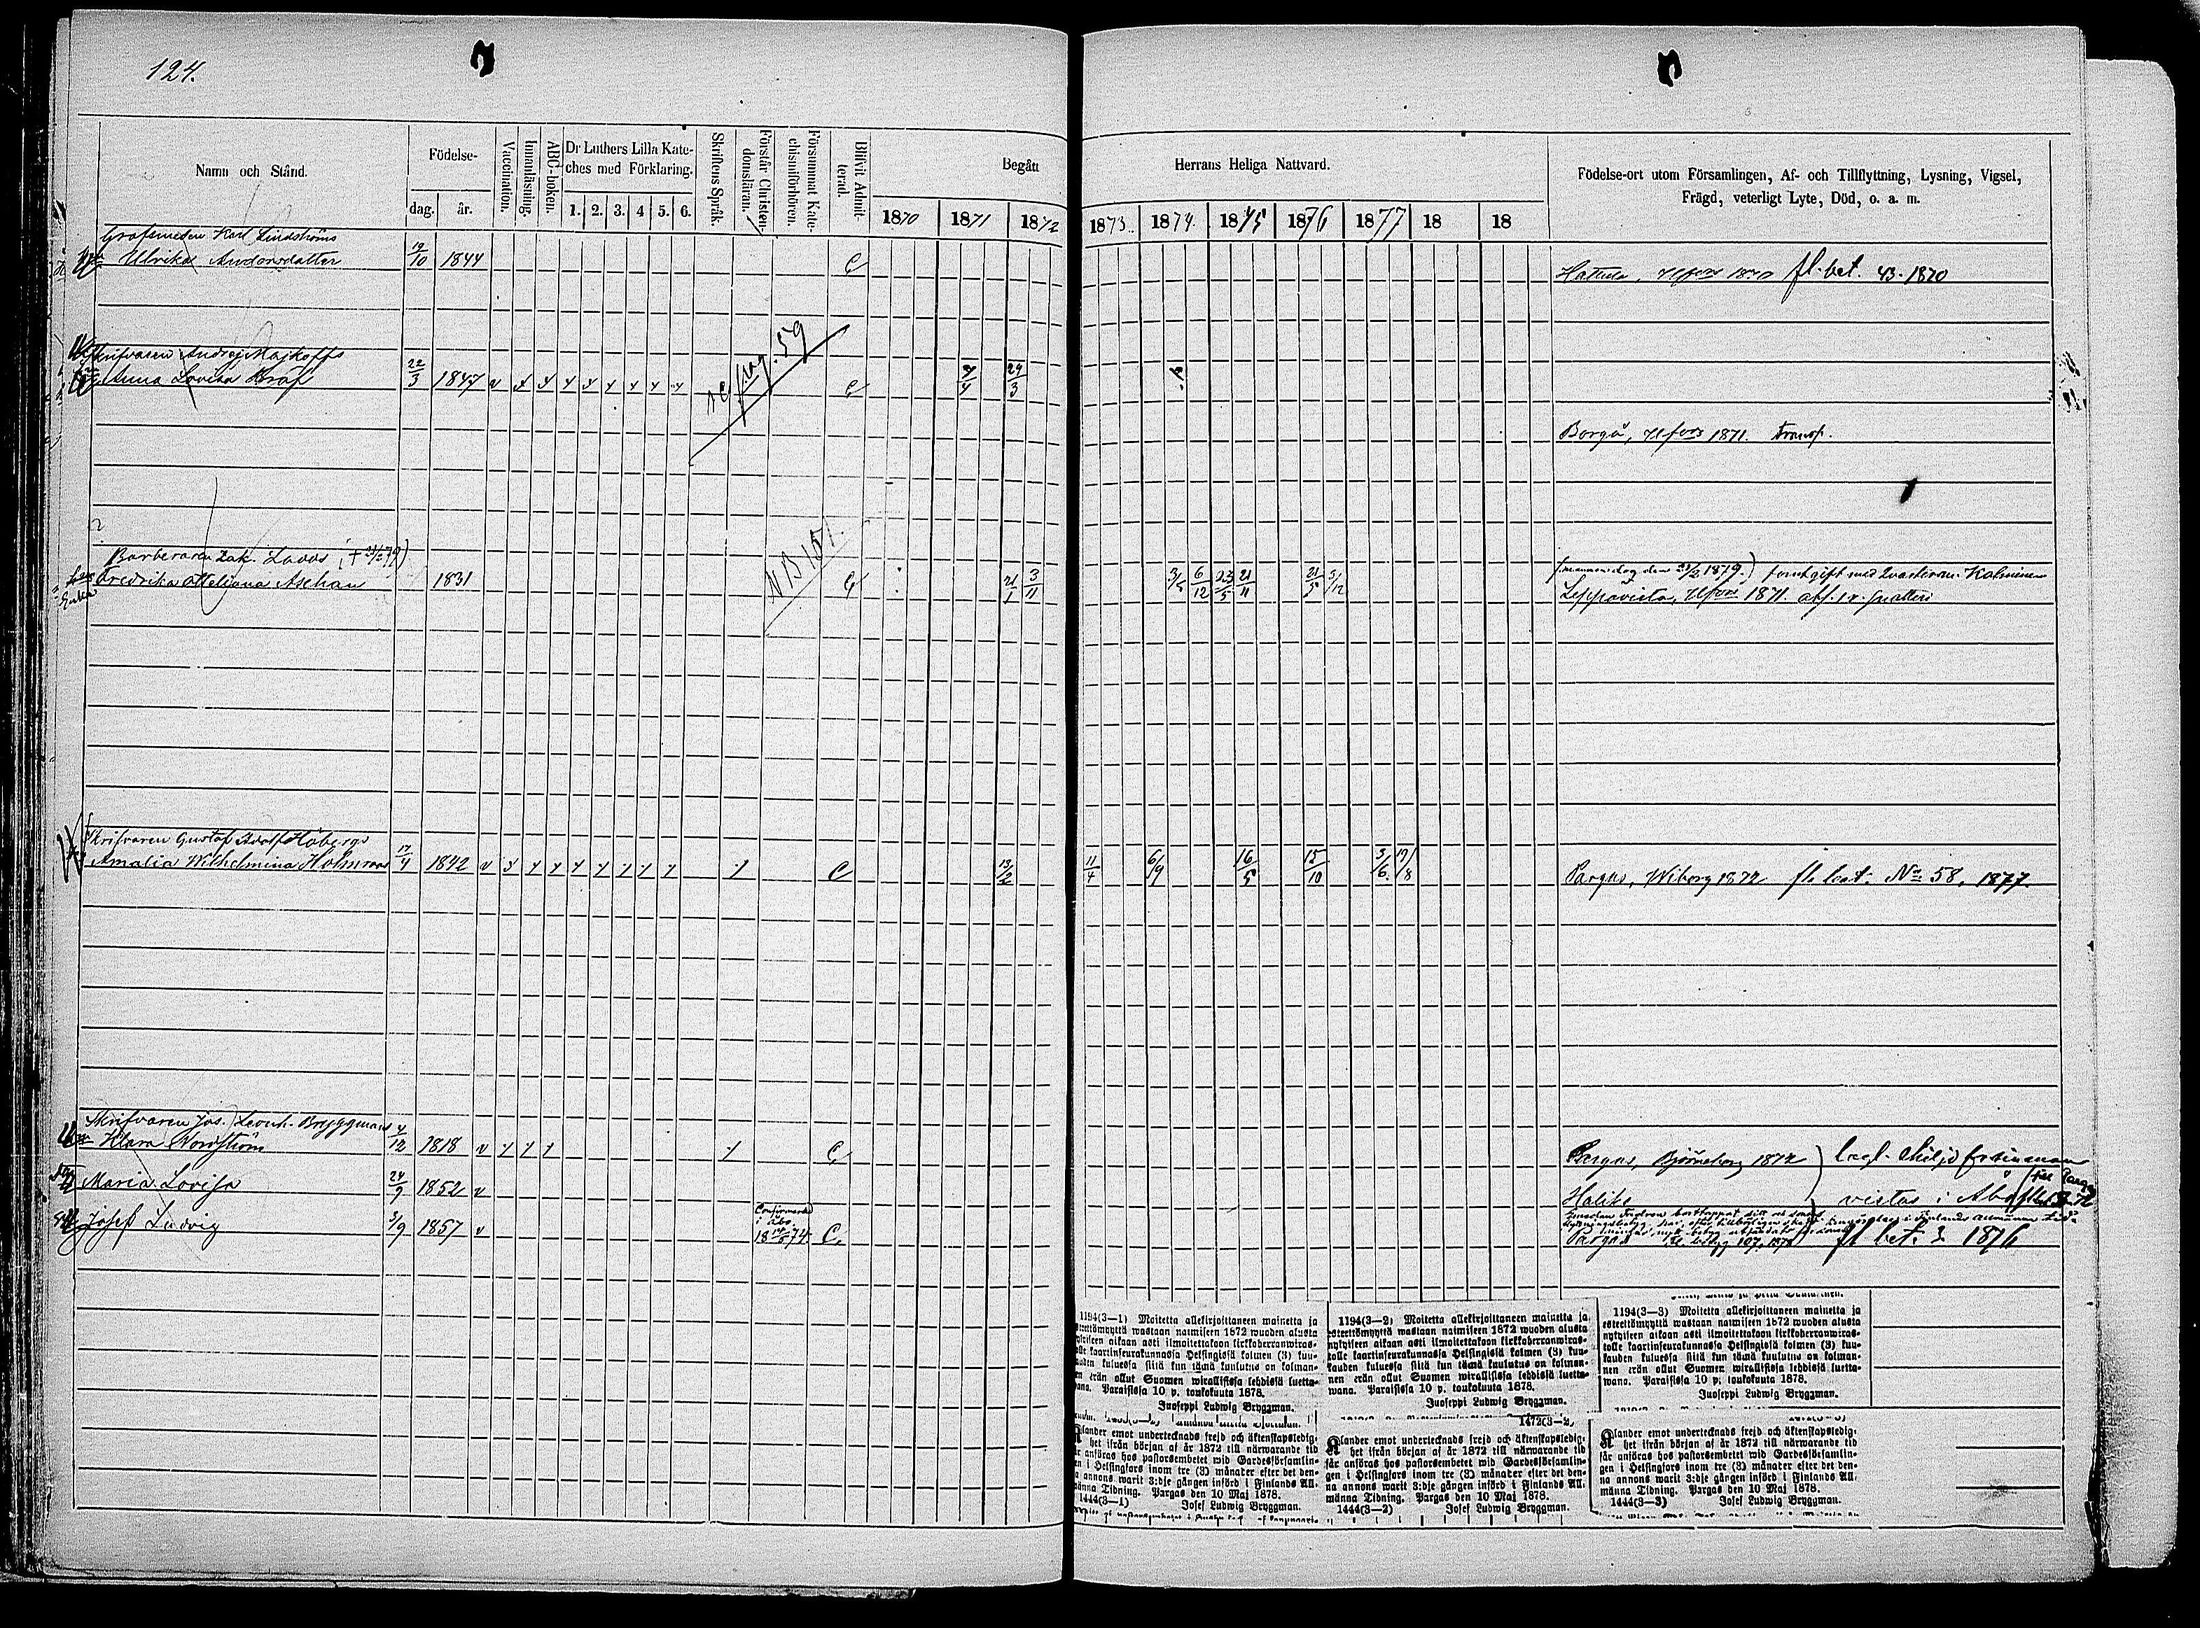 124.
Namn och Stånd.
Födelse-
dag. år.
Vaccination.
Innanläsning.
ABC-boken.
Dr Luthers Lilla Kate-
ches med Förklaring.
1. 2. 3. 4 5. 6.
Skriftens Språk.
Förstår Christen-
domsläran.
Försummat Kate-
chismiförhören.
Blifvit Admit-
terad.
Begått
Herrans Heliga Nattvard.
1870 1871 1872 1873 1874. 1875 1876 1877 18 18
Födelse-ort utom Församlingen, Af- och Tillflyttning, Lysning, Vigsel,
Frägd, veterligt Lyte, Död, o. a. m.
Karl Lindströms
Ulrika 19/10 1844 C
fl. bet. 43. 1870
Skrifvaren Andrej Majkoffs
Anna Lovisa 22/3 1847 v C 29/3
pag. 59
Borgå, Hfors 1871. transp.
Barberaren Zak.
Fredrika Aschan 1831 C 21/1 3/11 6/12 23/5 21/11 21/5 3/12
NB 151.
1879.)
Hfors 1871.
Skrifvaren Gustaf Adolf
Amalia Wilhelmina 1842 v C 13/2 11/4 6/9 16/5 15/10 3/6. 19/8
Pargas, Wiborg 1872 fl. bet. No 58. 1877.
Skrifvaren Jos. Leonh. Bryggmans
Klara Nordström 4/12 1818 v C
Pargas, Björneborg 1872
Maria Lovisa 24/9 1852 v
vistas i Åbo
Josef Ludvig 3/9 1857 v C
Confirmerad
i Åbo
Pargas
fl bet. 3 1876
1194(3—1) Moitetta allekirjoittaneen mainetta ja
esteettömyyttä wastaan naimiseen 1872 wuoden alusta
nykyiseen aikaan asti ilmoitettakoon kirkkoherranwiras-
tolle kaartinseurakunnassa Helsingissä kolmen (3) kuu-
kauden kuluessa siitä kun tämä kuulutus on kolman-
nen erän ollut Suomen wirallisissa lehdissä luetta-
wana. Paraisissa 10 p. toukokuuta 1878.
Juoseppi Ludwig Bryggman.
1194(3—2) Moitetta allekirjoittaneen mainetta ja
esteettömyyttä wastaan naimiseen 1872 wuoden alusta
nykyiseen aikaan asti ilmoitettakoon kirkkoherranwiras-
tolle kaartinseurakunnassa Helsingissä kolmen (3) kuu-
kauden kuluessa siitä kun tämä kuulutus on kolman-
nen erän ollut Suomen wirallisissa lehdissä luetta-
wana. Paraisissa 10 p. toukokuuta 1878.
Juoseppi Ludwig Bryggman.
1194(3—3) Moitetta allekirjoittaneen mainetta ja
esteettömyyttä wastaan naimiseen 1872 wuoden alusta
nykyiseen aikaan asti ilmoitettakoon kirkkoherranwiras-
tolle kaartinseurakunnassa Helsingissä kolmen (3) kuu-
kauden kuluessa siitä kun tämä kuulutus on kolman-
nen erän ollut Suomen wirallisissa lehdissä luetta-
wana. Paraisissa 10 p. toukokuuta 1878.
Juoseppi Ludwig Bryggman.
Klander emot undertecknads frejd och äktenskapsledig-
het ifrån början af år 1872 till närwarande tid
får anföras hos pastorsembetet wid Gardesförsamlin-
gen i Helsingfors inom tre (3) månader efter det den-
na annons warit 3:dje gången införd i Finlands All-
männa Tidning. Pargas den 10 Maj 1878.
1444(3—1) Josef Ludwig Bryggman.
1472(3—2)
Klander emot undertecknads frejd och äktenskapsledig-
het ifrån början af år 1872 till närwarande tid
får anföras hos pastorsembetet wid Gardesförsamlin-
gen i Helsingfors inom tre (3) månader efter det den-
na annons warit 3:dje gången införd i Finlands All-
männa Tidning. Pargas den 10 Maj 1878.
1444(3—2) Josef Ludwig Bryggman.
Klander emot undertecknads frejd och äktenskapsledig-
het ifrån början af år 1872 till närwarande tid
får anföras hos pastorsembetet wid Gardesförsamlin-
gen i Helsingfors inom tre (3) månader efter det den-
na annons warit 3:dje gången införd i Finlands All-
männa Tidning. Pargas den 10 Maj 1878.
1444(3—3) Josef Ludwig Bryggman.